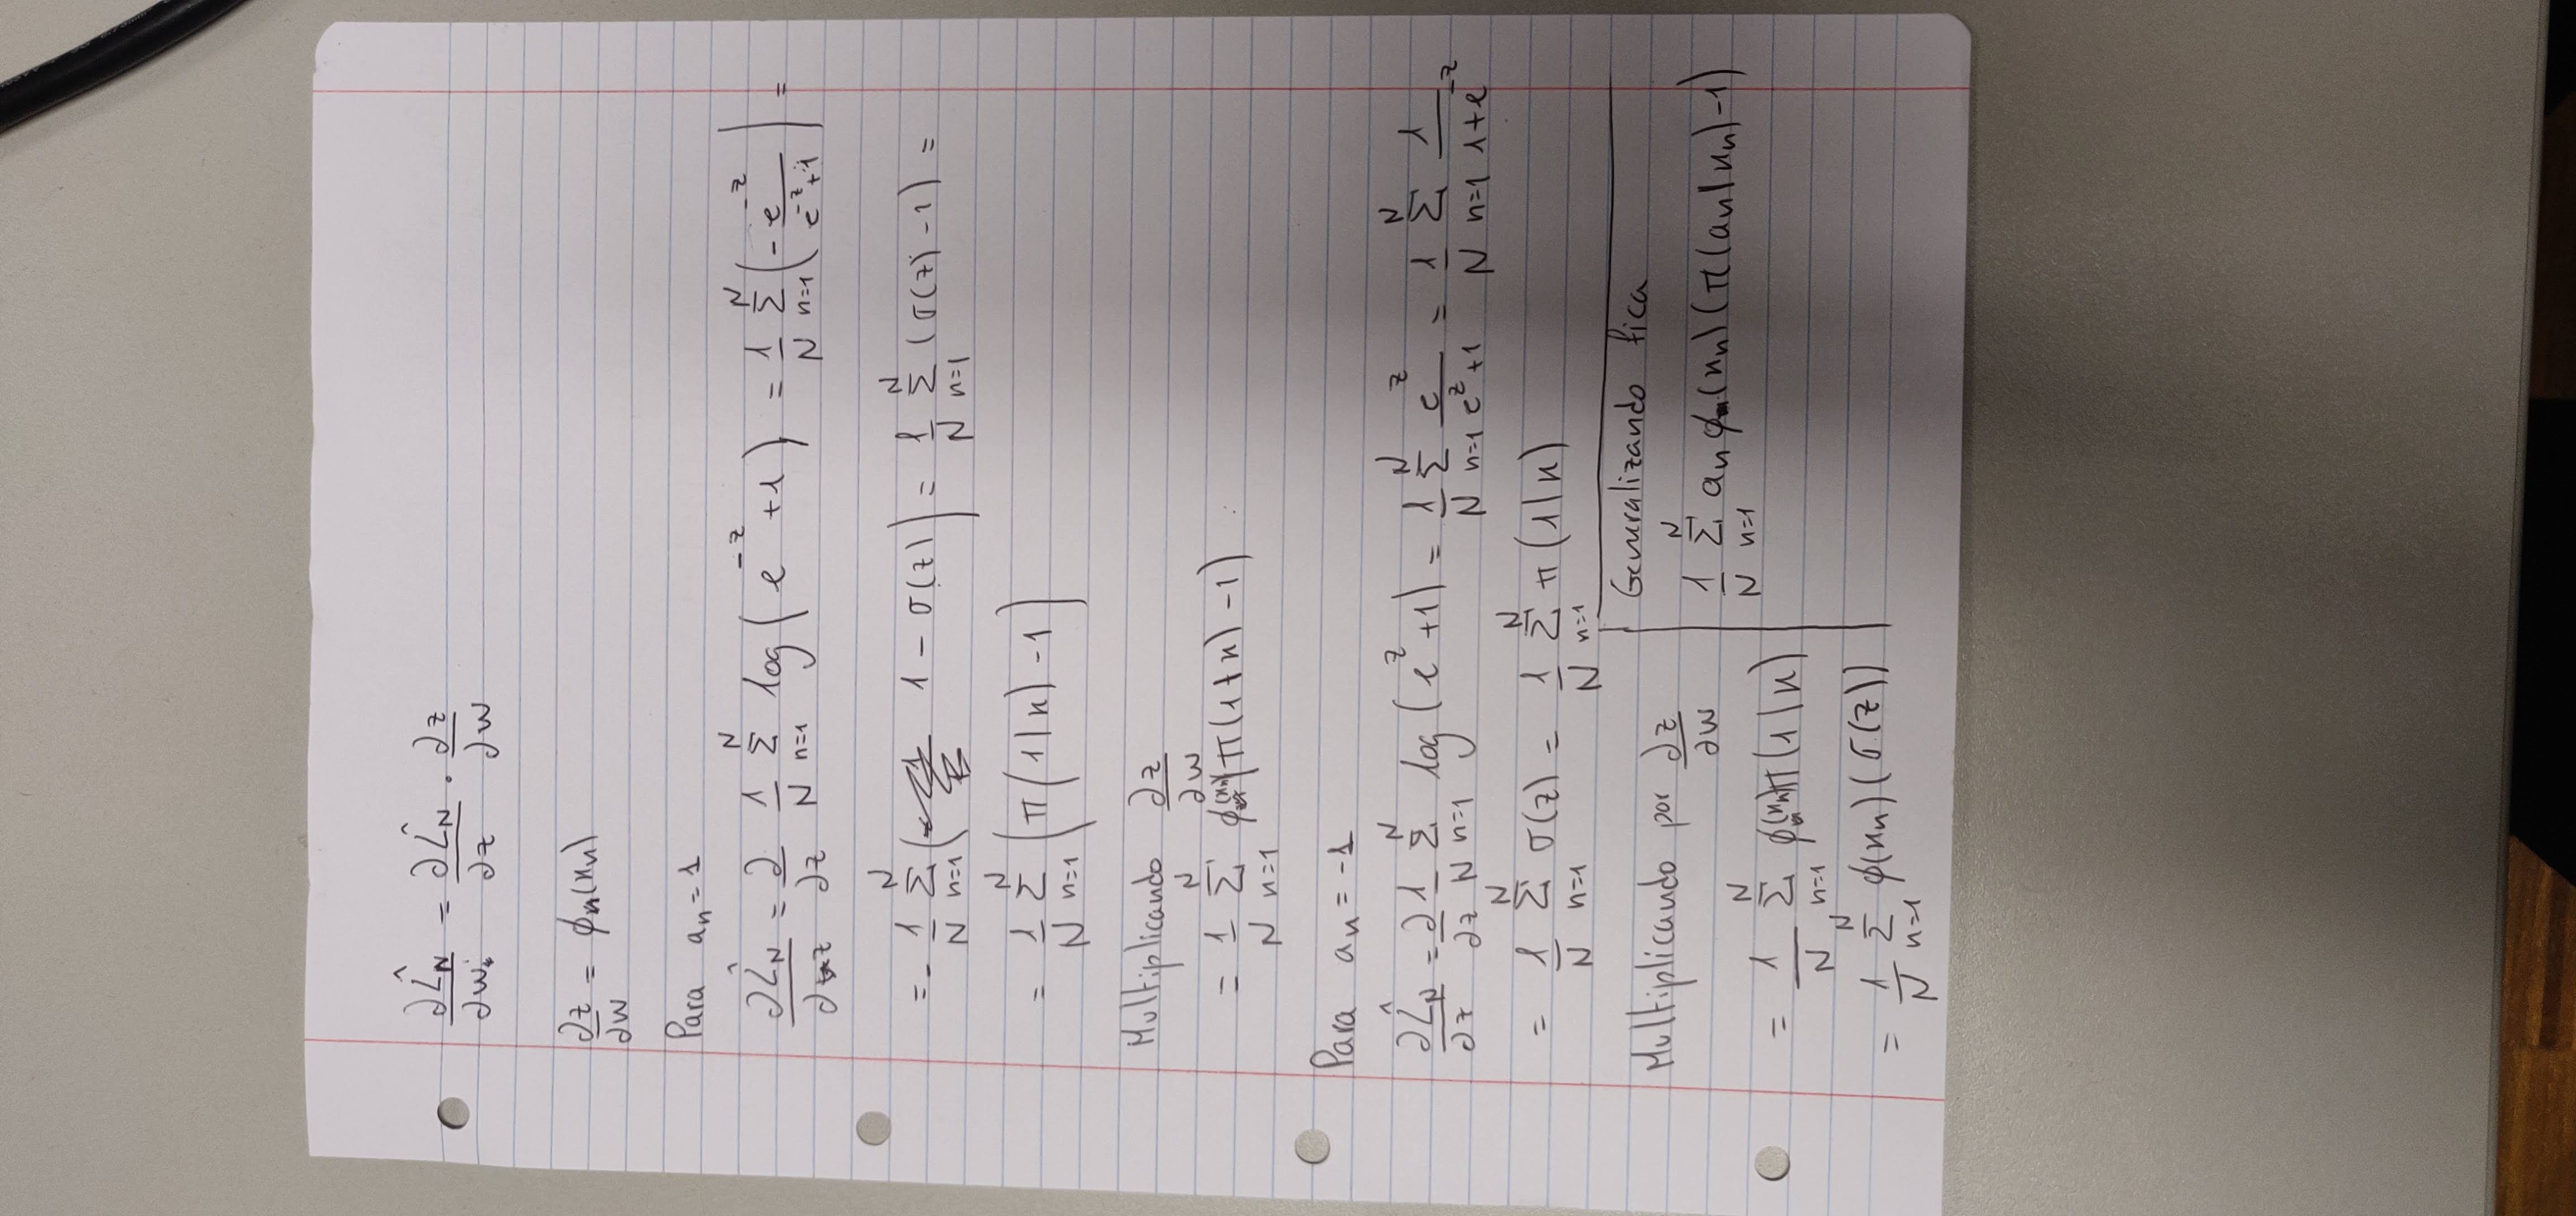 ∂L̂_N/∂w_i = ∂L̂_N/∂z · ∂z/∂w
∂z/∂w = ϕ_n(x_n)
Para a_n = 1
∂L̂_N/∂z = ∂/∂z 1/N Σ_{n=1}^{N} log(e^{-z} + 1) = 1/N Σ_{n=1}^{N} (- e^{-z}/(e^{-z}+1)) =
= - 1/N Σ_{n=1}^{N} (1 - σ(z)) = 1/N Σ_{n=1}^{N} (σ(z) - 1) =
= 1/N Σ_{n=1}^{N} (π(1|x) - 1)
Multiplicando ∂z/∂w
= 1/N Σ_{n=1}^{N} ϕ(x_n)(π(1|x) - 1)
Para a_n = -1
∂L̂_N/∂z = ∂/∂z 1/N Σ_{n=1}^{N} log(e^z + 1) = 1/N Σ_{n=1}^{N} e^z/(e^z + 1) = 1/N Σ_{n=1}^{N} 1/(1 + e^{-z})
= 1/N Σ_{n=1}^{N} σ(z) = 1/N Σ_{n=1}^{N} π(1|x)
Multiplicando por ∂z/∂w
= 1/N Σ_{n=1}^{N} ϕ(x_n) π(1|x)
= 1/N Σ_{n=1}^{N} ϕ(x_n)(σ(z))
Generalizando fica
1/N Σ_{n=1}^{N} a_n ϕ(x_n)(π(a_n|x_n) - 1)